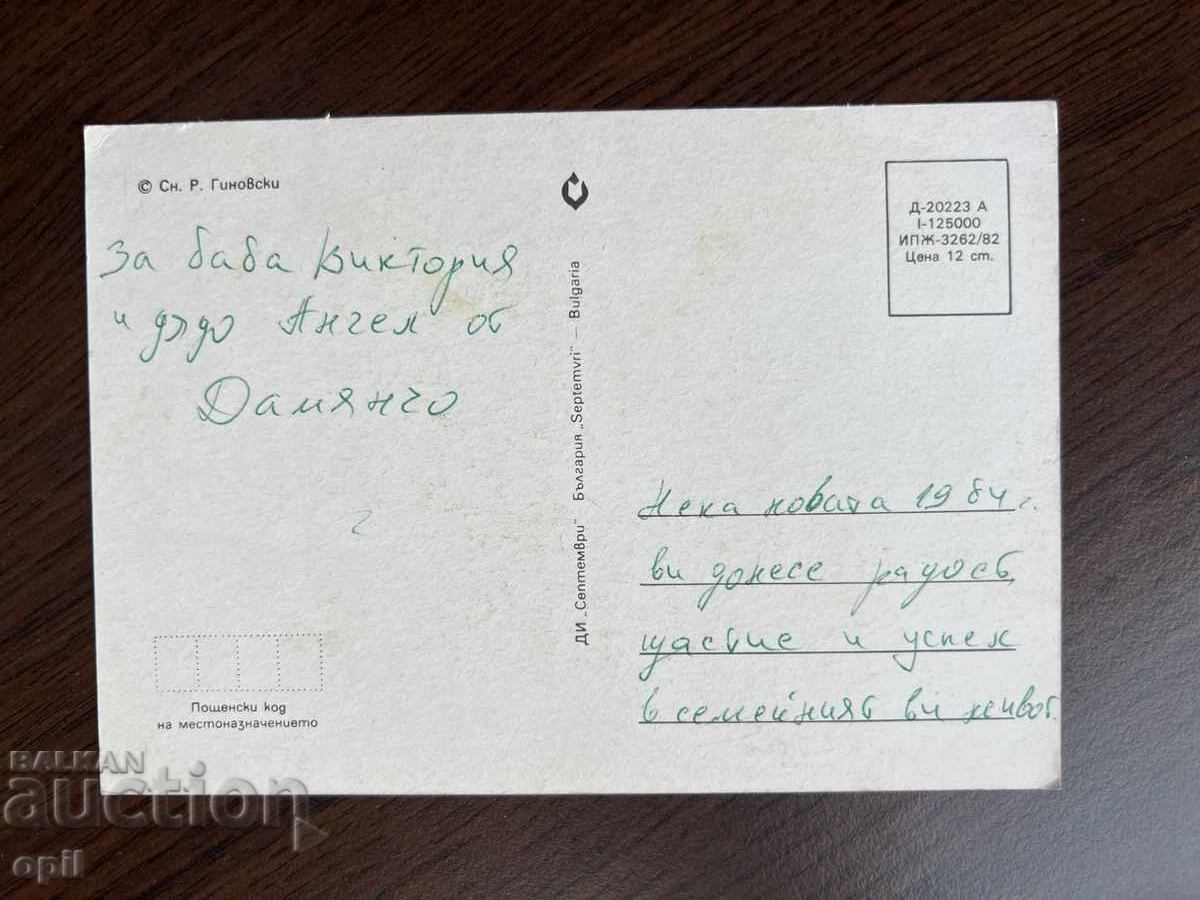 © Сн. Р. Гиновски
За баба Виктория
и дядо Ангел от
Дамянчо
ДИ „Септември" България „Septemvri" — Bulgaria
Д-20223 А
I-125000
ИПЖ-3262/82
Цена 12 ст.
Нека новата 1984 г.
ви донесе радост,
щастие и успех
в семейният ви живот.
Пощенски код
на местоназначението
BALKAN
auction
opil